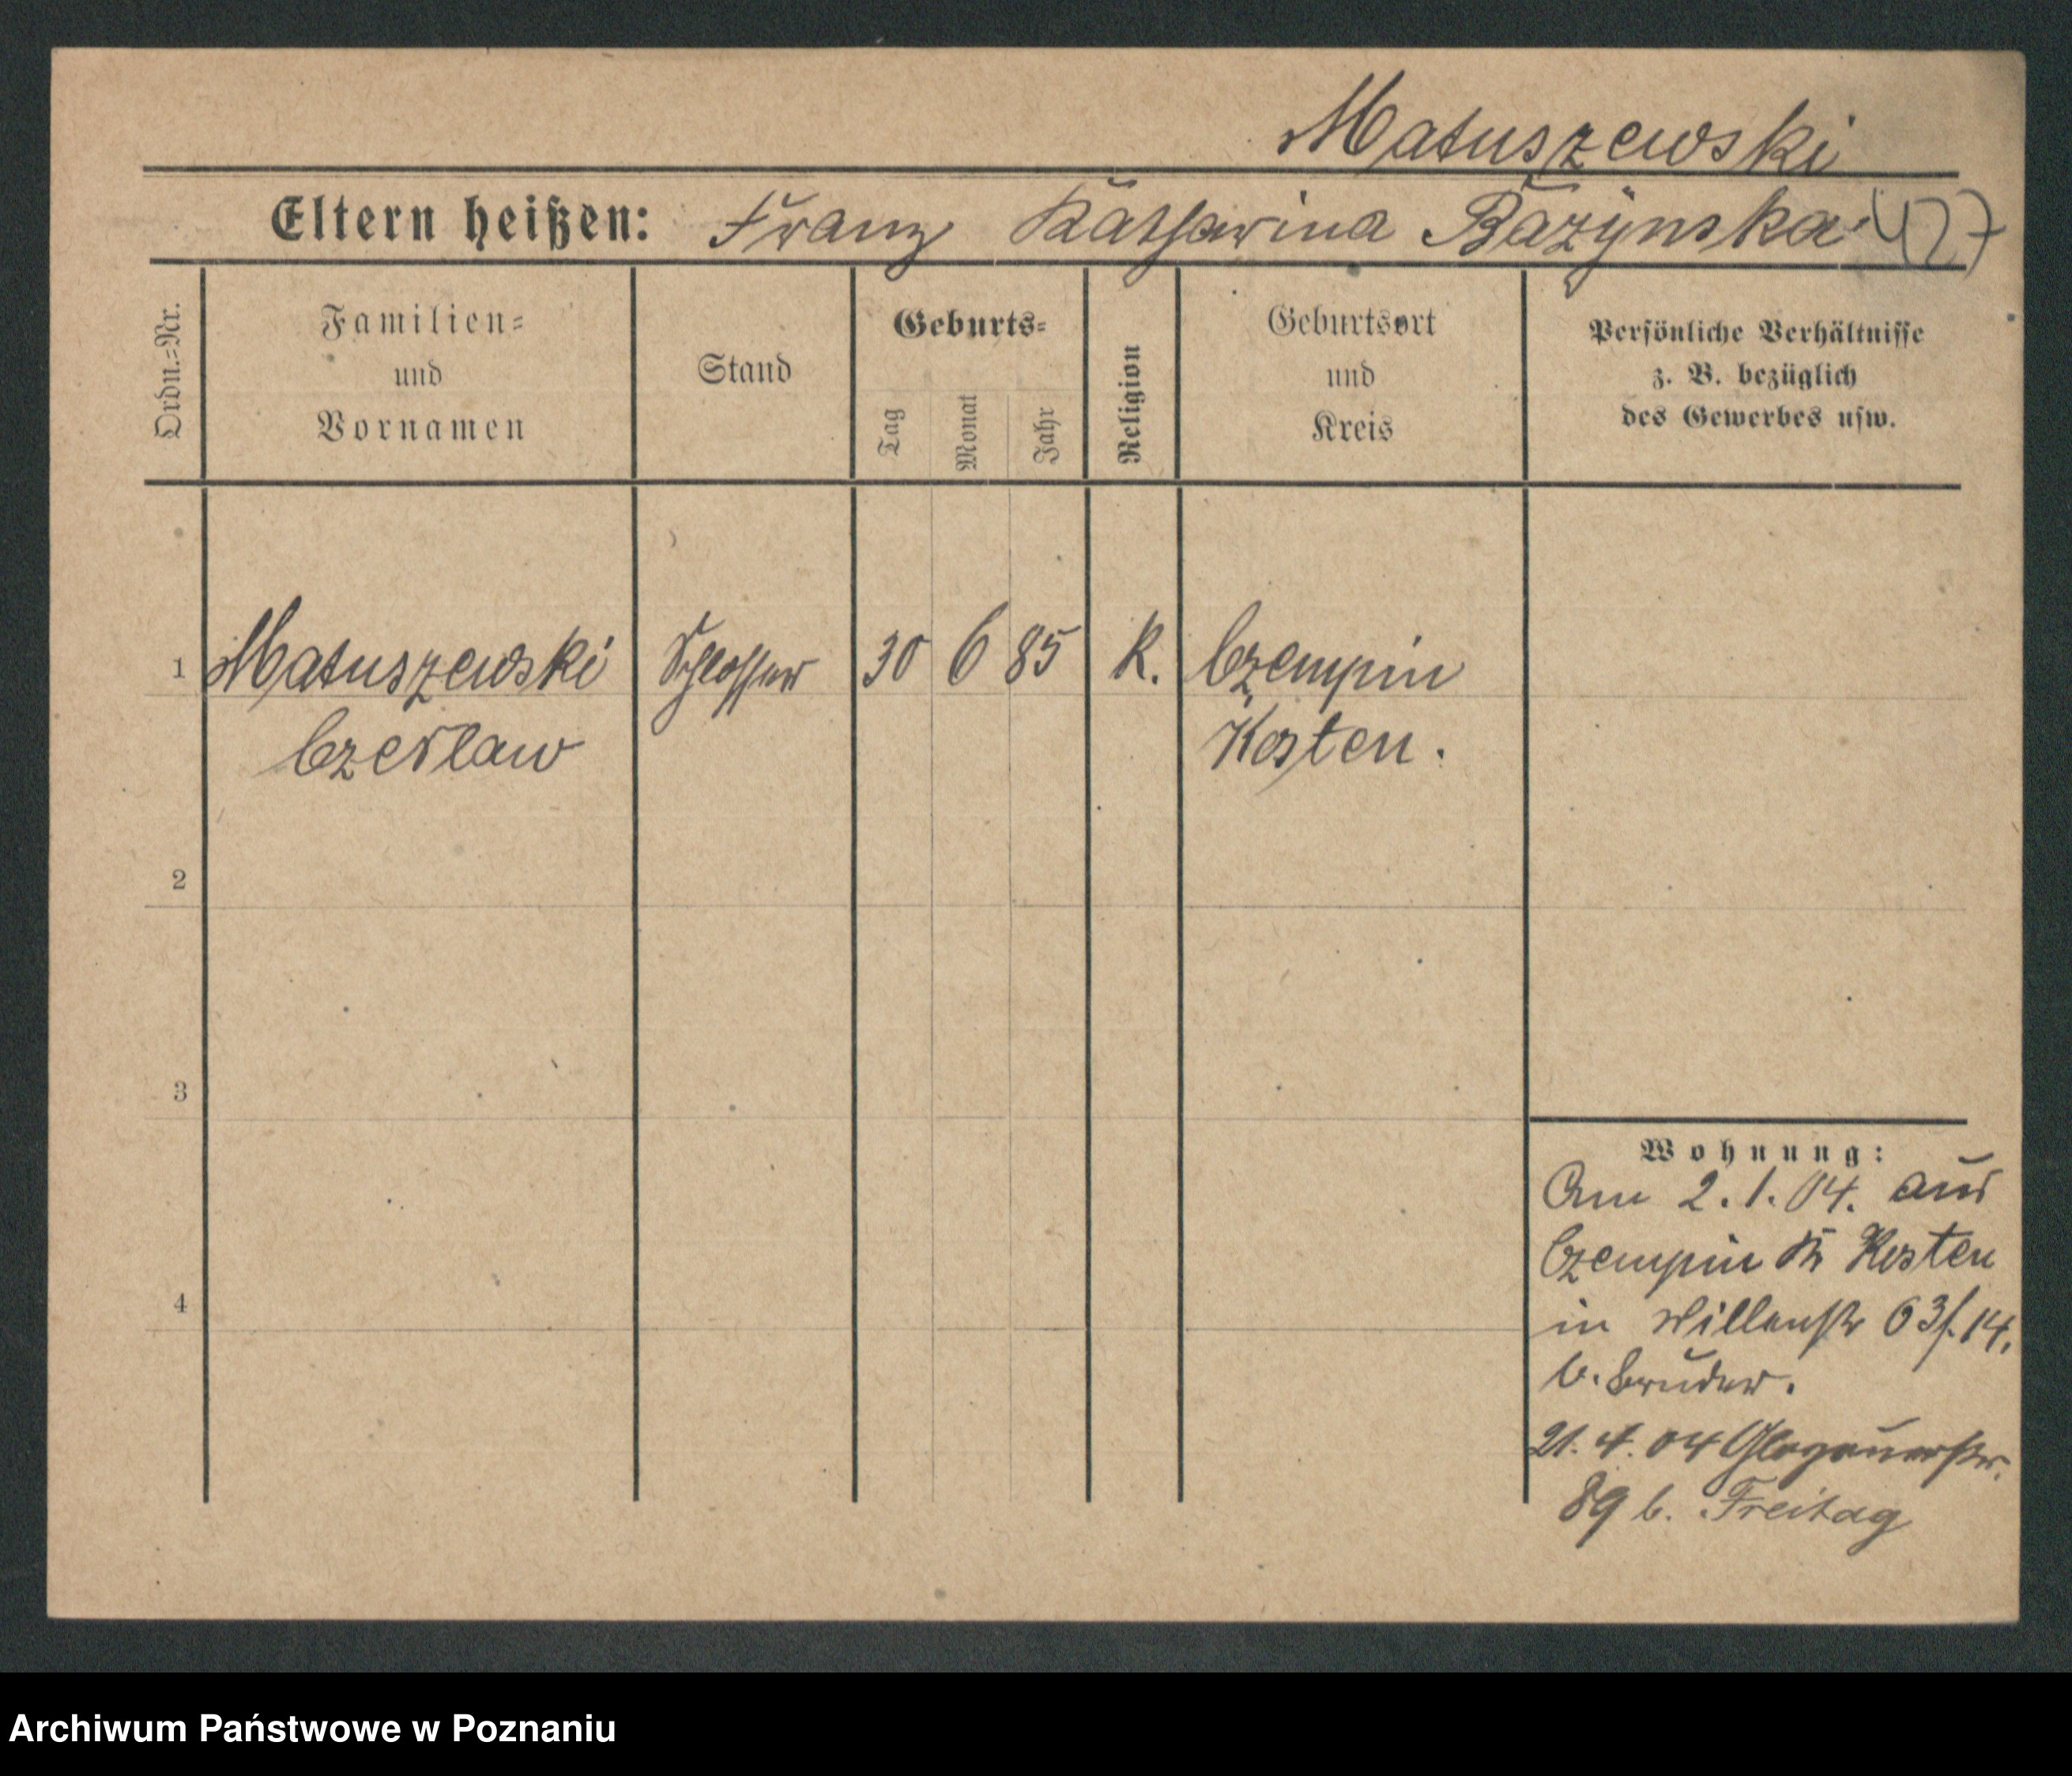 Matuszewski
Eltern heißen: Franz Katharina Bažynska 427
Ordn.=Nr.
Familien=
und
Vornamen
Stand
Geburts=
Tag
Monat
Jahr
Religion
Geburtsort
und
Kreis
Persönliche Verhältnisse
z. B. bezüglich
des Gewerbes usw.
1 Matuszewski Schlosser 30 6 85 K. Czempin
Czeslaw Kosten.
2
3
4
Wohnung:
Am 2.1.04. aus
Czempin Kr Kosten
in 63/.14.
b. Bruder.
21.4.04 Glogauerstr.
89 b. Freitag
Archiwum Państwowe w Poznaniu